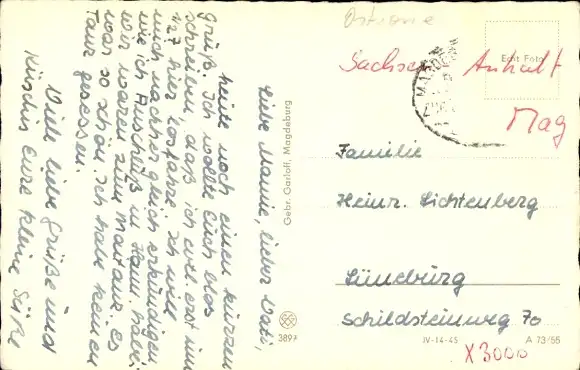 Liebe Mamie, lieber Vati,
heute noch einen kurzen
Gruß. Ich wollte Euch blos
schreiben, daß ich evtl. erst um
127 hier losfahre. Ich will
mich nachher gleich erkundigen
wie ich Anschluß in Hann. habe.
Wir waren zum
war so schön. Ich habe keinen
Tanz gesessen.
Viele liebe Grüße und
Küsschen Eure kleine Süße
Gebr. Garloff, Magdeburg
3897
Ostzone
Echt Foto
Sachsen Anhalt
Mag
Familie
Heinr. Lichtenberg
Lüneburg
Schildsteinweg 70
IV-14-45 A 73/55
X3000